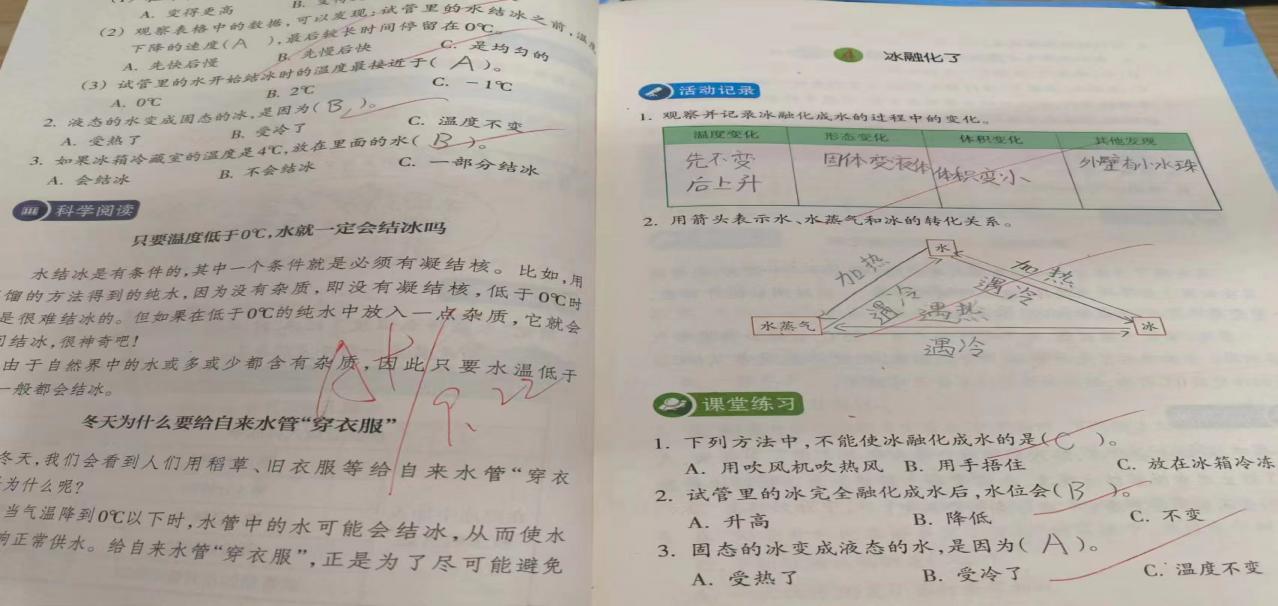 A. 变得更高
(2) 观察表格中的数据,可以发现:试管里的水结冰之前,温度
下降的速度(A),最后较长时间停留在0℃。
A. 先快后慢 B. 先慢后快 C. 是均匀的
(3) 试管里的水开始结冰时的温度最接近于(A)。
A. 0℃ B. 2℃ C. -1℃
2. 液态的水变成固态的冰,是因为(B)。
A. 受热了 B. 受冷了 C. 温度不变
3. 如果冰箱冷藏室的温度是4℃,放在里面的水(B)。
A. 会结冰 B. 不会结冰 C. 一部分结冰
科学阅读
只要温度低于0℃,水就一定会结冰吗
水结冰是有条件的,其中一个条件就是必须有凝结核。比如,用
馏的方法得到的纯水,因为没有杂质,即没有凝结核,低于0℃时
是很难结冰的。但如果在低于0℃的纯水中放入一点杂质,它就会
结冰,很神奇吧!
由于自然界中的水或多或少都含有杂质,因此只要水温低于
一般都会结冰。
冬天为什么要给自来水管“穿衣服”
冬天,我们会看到人们用稻草、旧衣服等给自来水管“穿衣
为什么呢?
当气温降到0℃以下时,水管中的水可能会结冰,从而使水
响正常供水。给自来水管“穿衣服”,正是为了尽可能避免
9.22
4 冰融化了
活动记录
1. 观察并记录冰融化成水的过程中的变化。
温度变化 形态变化 体积变化 其他发现
先不变 固体变液体 体积变小 外壁有小水珠
后上升
2. 用箭头表示水、水蒸气和冰的转化关系。
水
加热 加热
遇冷 遇冷
遇热
水蒸气 冰
遇冷
课堂练习
1. 下列方法中,不能使冰融化成水的是(C)。
A. 用吹风机吹热风 B. 用手捂住 C. 放在冰箱冷冻
2. 试管里的冰完全融化成水后,水位会(B)。
A. 升高 B. 降低 C. 不变
3. 固态的冰变成液态的水,是因为(A)。
A. 受热了 B. 受冷了 C. 温度不变